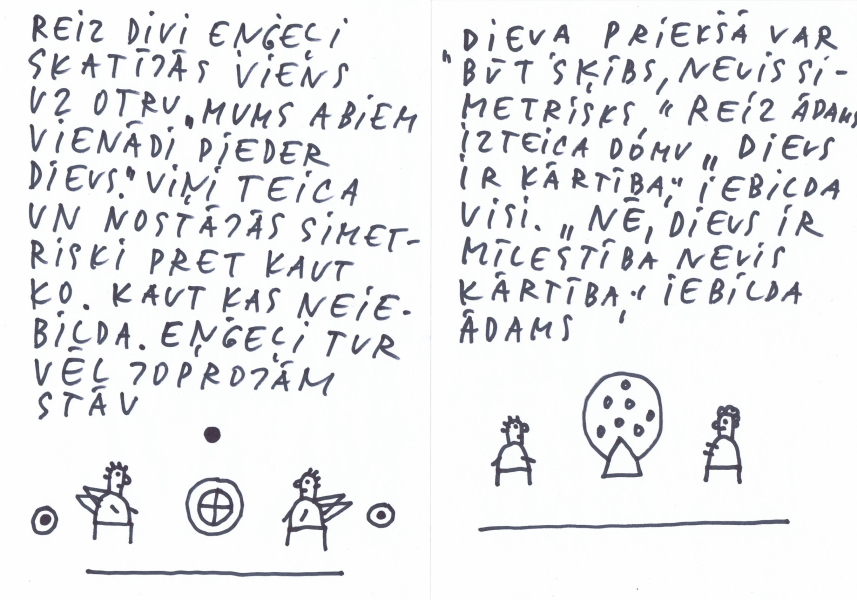 REIZ DIVI EŅĢEĻI
SKATĪJĀS VIENS
UZ OTRU „MUMS ABIEM
VIENĀDI PIEDER
DIEVS." VIŅI TEICA
UN NOSTĀJĀS SIMET-
RISKI PRET KAUT
KO. KAUT KAS NEIE-
BILDA. EŅĢEĻI TUR
VĒL JOPROJĀM
STĀV
„DIEVA PRIEKŠĀ VAR
BŪT ŠĶĪBS, NEVIS SI-
METRISKS," REIZ ĀDAMS
IZTEICA DOMU „DIEVS
IR KĀRTĪBA," IEBILDA
VISI. „NĒ, DIEVS IR
MĪLESTĪBA NEVIS
KĀRTĪBA," IEBILDA
ĀDAMS